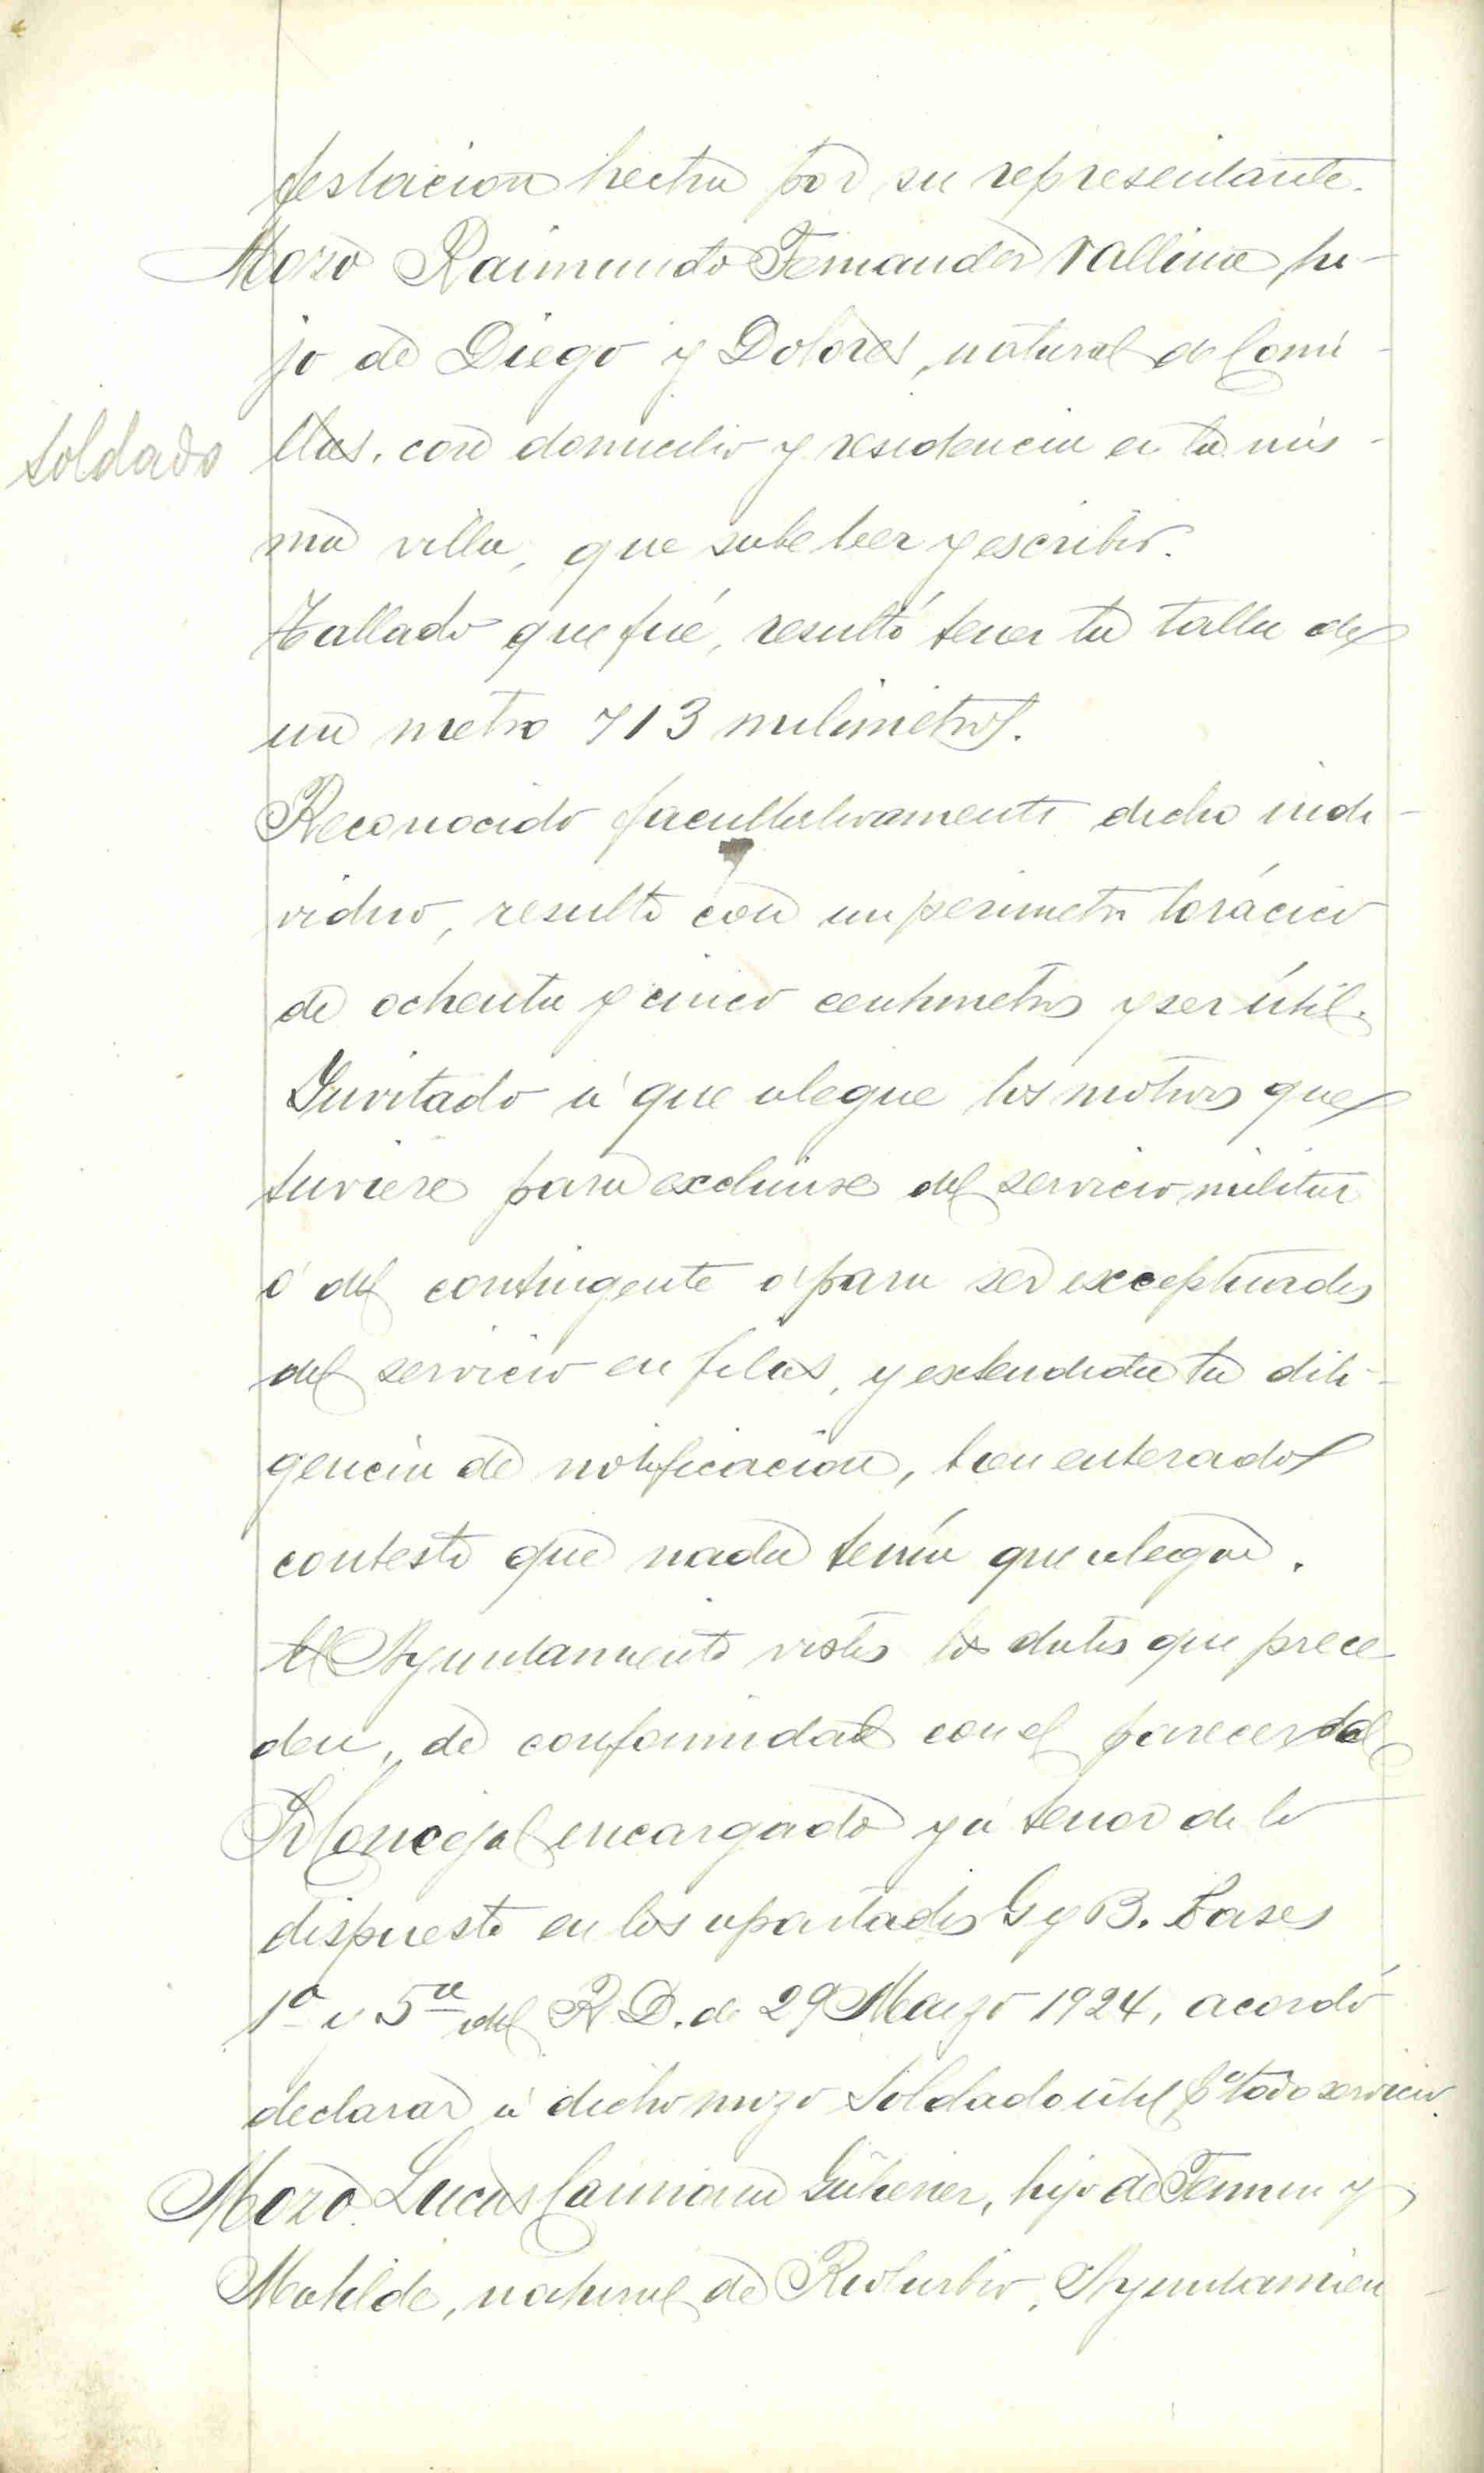 festacion hecha por su representante.
Mozo Raimundo Fernandez Vallina, hi-
jo de Diego y Dolores, natural de Comi-
Soldado
llas, con domicilio y residencia en la mis-
ma villa, que sabe leer y escribir.
Tallado que fué, resultó tener la talla de
un metro 713 milimetros.
Reconocido facultativamente dicho indi-
viduo, resultó con un perimetro torácico
de ochenta y cinco centimetros y ser útil.
Invitado á que alegue los motivos que
tuviere para excluirse del servicio militar
ó del contingente ó para ser exceptuados
del servicio en filas, y extendida la dili-
gencia de notificacion, bien enterados
contestó que nada tenía que alegar.
El Ayuntamiento vistos los datos que prece
den, de conformidad con el parecer del
Sr Concejal encargado y á tenor de lo
dispuesto en los apartados G y B. Bases
1ª y 5ª del R D. de 29 Marzo 1924, acordó
declarar á dicho mozo Soldado útil pª todo servicio.
Mozo Lucas hijo de Fermin y
Matilde, natural de Rioturbio, Ayuntamien-